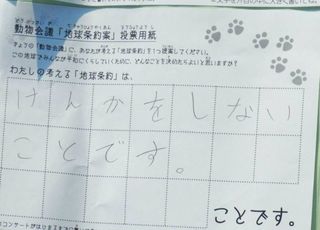 動物会議「地球条約案」投票用紙
きょうの「動物会議」に、あなたが考える「地球条約」を1つ提案してください。
この地球でみんなが平和にくらしていくために、どんなことを決めたらよいと思いますか?
わたしの考える「地球条約」は、
けんかをしない
ことです。
ことです。